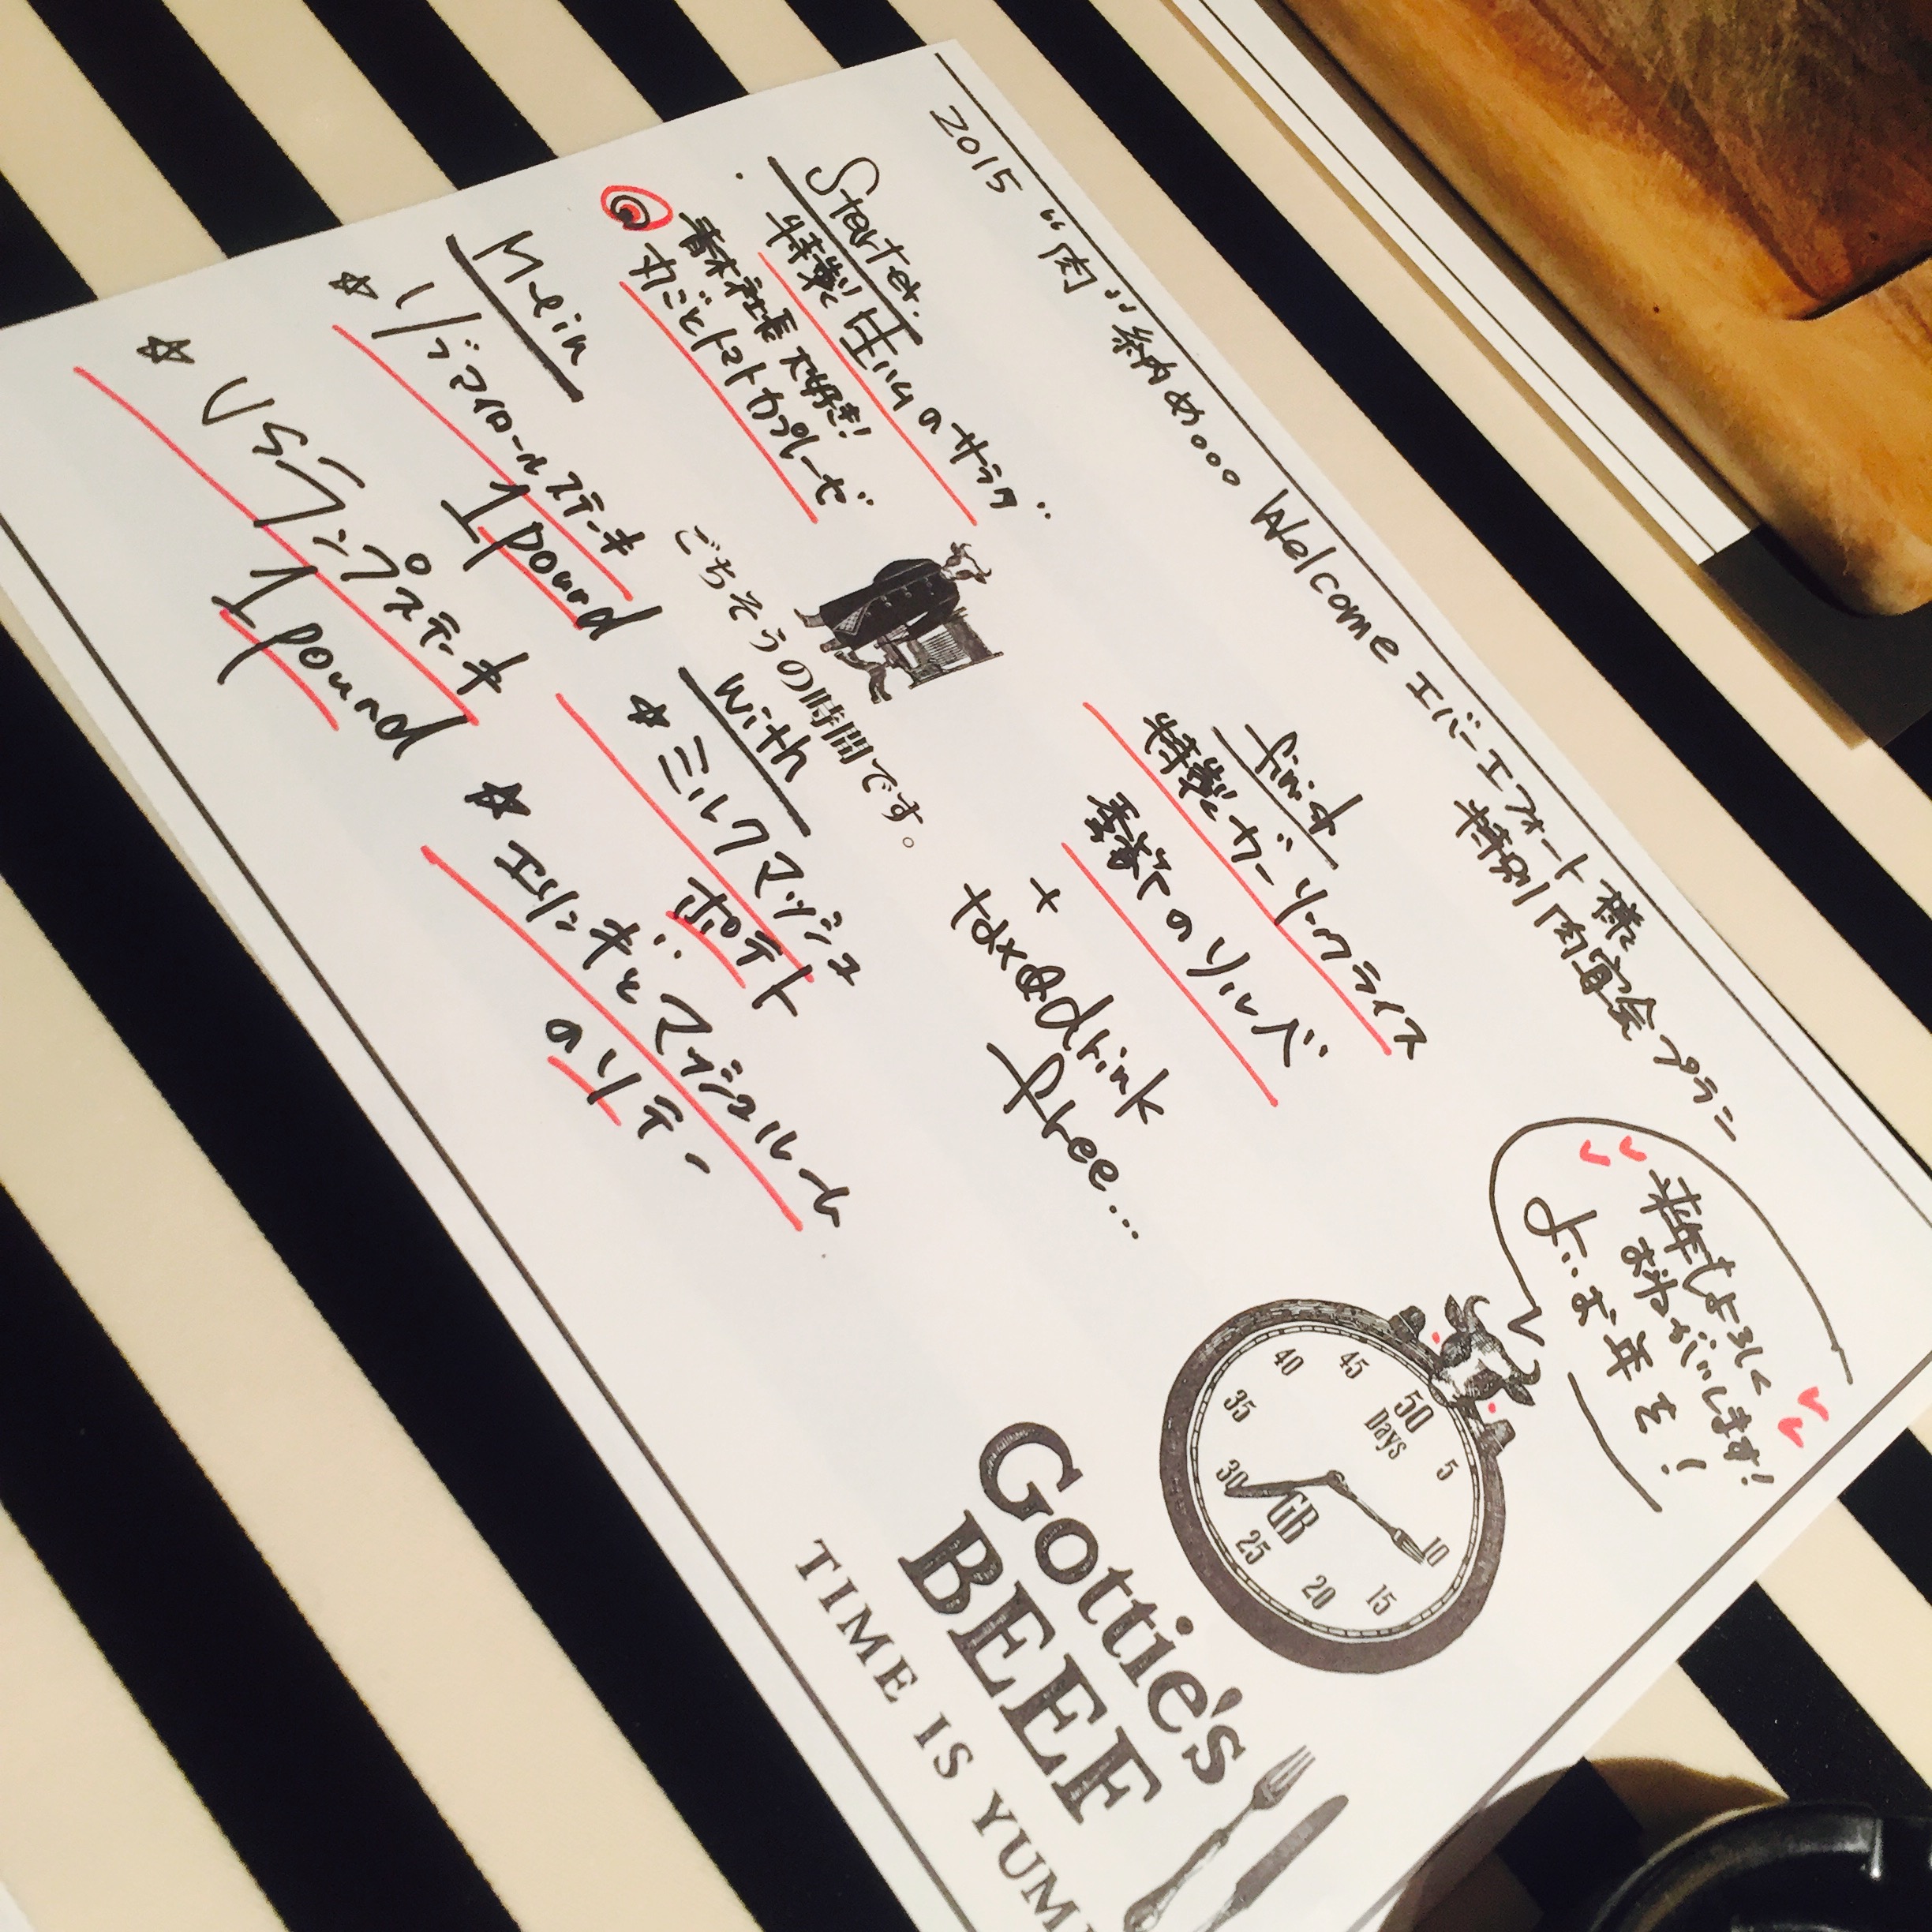 2015 "肉"納め。。。 Welcome エバーエフォート様
特別肉宴会プラン
Starter.
・特製生ハムのサラダ
青木社長大好き!
丸ごとトマトカプレーゼ
Mein
☆リブアイロールステーキ
1pound
☆USランプステーキ
1pound
ごちそうの時間です。
with
☆ミルクマッシュ
ポテト
☆エリンギとマッシュルーム
のソテー
finish
特製ガーリックライス
季節のソルベ
+
tax@drink
free...
来年もよろしく
お願いします!
よいお年を!
50 Days 5 10 15 20 25 30 35 40 45
GB
Gottie's
BEEF
TIME IS YUMM